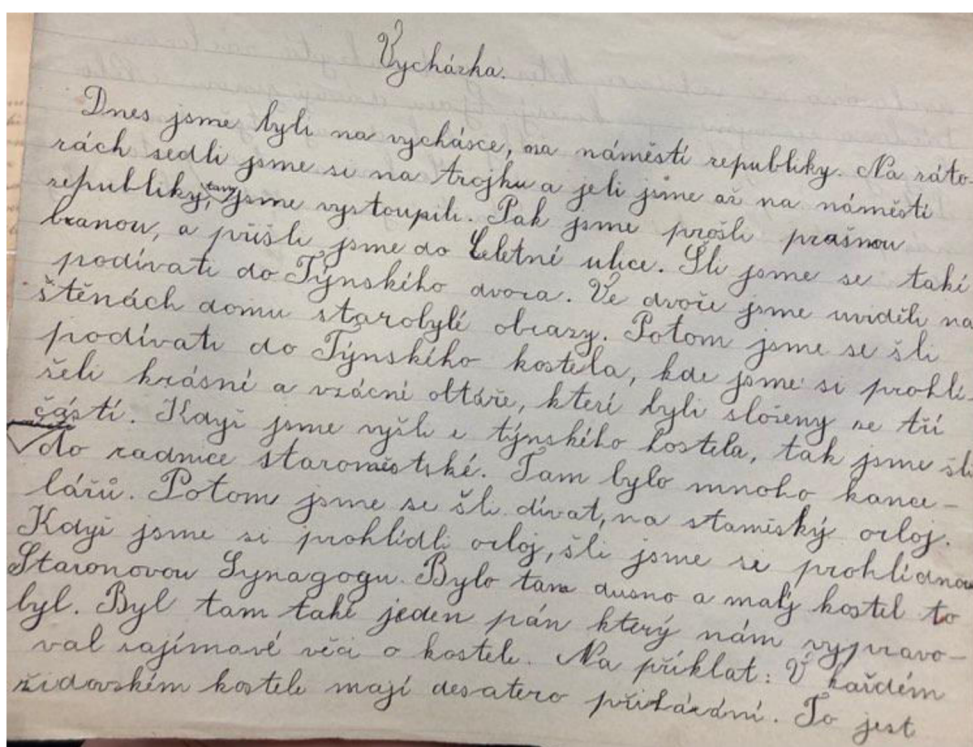 Vycházka.
Dnes jsme byli na vycházce, na náměstí republiky. Na ráto-
rách sedli jsme si na trojku a jeli jsme až na náměstí
republiky, tam jsme vystoupili. Pak jsme prošli prašnou
branou, a přišli jsme do Celetné ulice. Šli jsme se také
podívati do Týnského dvora. Ve dvoře jsme uviděli na
štěnách domu starobylé obrazy. Potom jsme se šli
podívati do Týnského kostela, kde jsme si prohlí-
želi krásné a vzácné oltáře, které byli složeny se tří
částí. Když jsme vyšli z týnského kostela, tak jsme šli
do radnice staroměstské. Tam bylo mnoho kance-
lářů. Potom jsme se šli dívat, na staměský orloj.
Když jsme si prohlídli orloj, šli jsme se prohlídnou
Staronovou Synagogu. Bylo tam dusno a malý kostel to
byl. Byl tam také jeden pán který nám vypravo-
val zajímavé věci o kostele. Na příklat: V každém
židovském kostele mají desatero přikázání. To jest